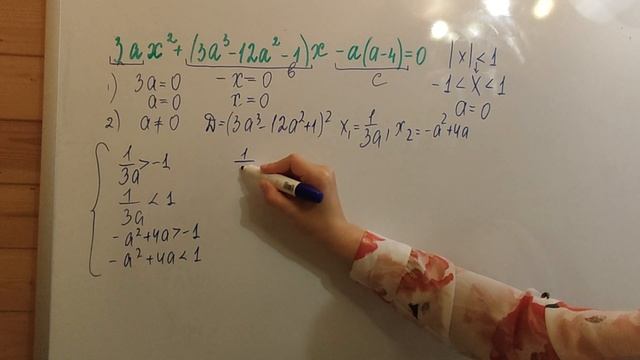 3ax² + (3a³-12a²-1)x -a(a-4)=0
в
c
|x|<1
-1<x<1
a=0
1) 3a=0 -x=0
a=0 x=0
2) a≠0 D=(3a³-12a²+1)² x₁=1/3a, x₂=-a²+4a
1/3a>-1
1/3a<1
-a²+4a>-1
-a²+4a<1
1